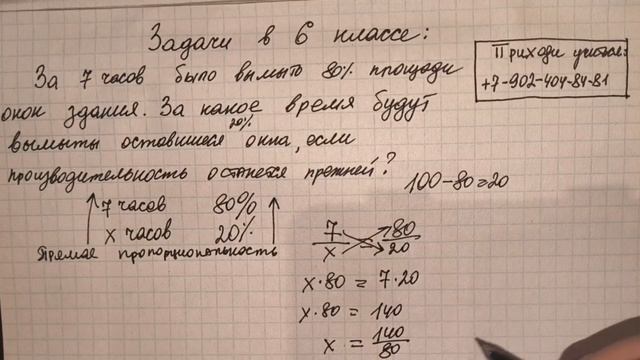 Задачи в 6 классе:
Приходи учиться:
+7-902-404-84-81
За 7 часов было вымыто 80% площади
окон здания. За какое время будут
20%
вымыты оставшиеся окна, если
производительность останется прежней?
100-80=20
7 часов 80%
x часов 20%
Прямая пропорциональность
7/x 80/20
x·80 = 7·20
x·80 = 140
x = 140/80